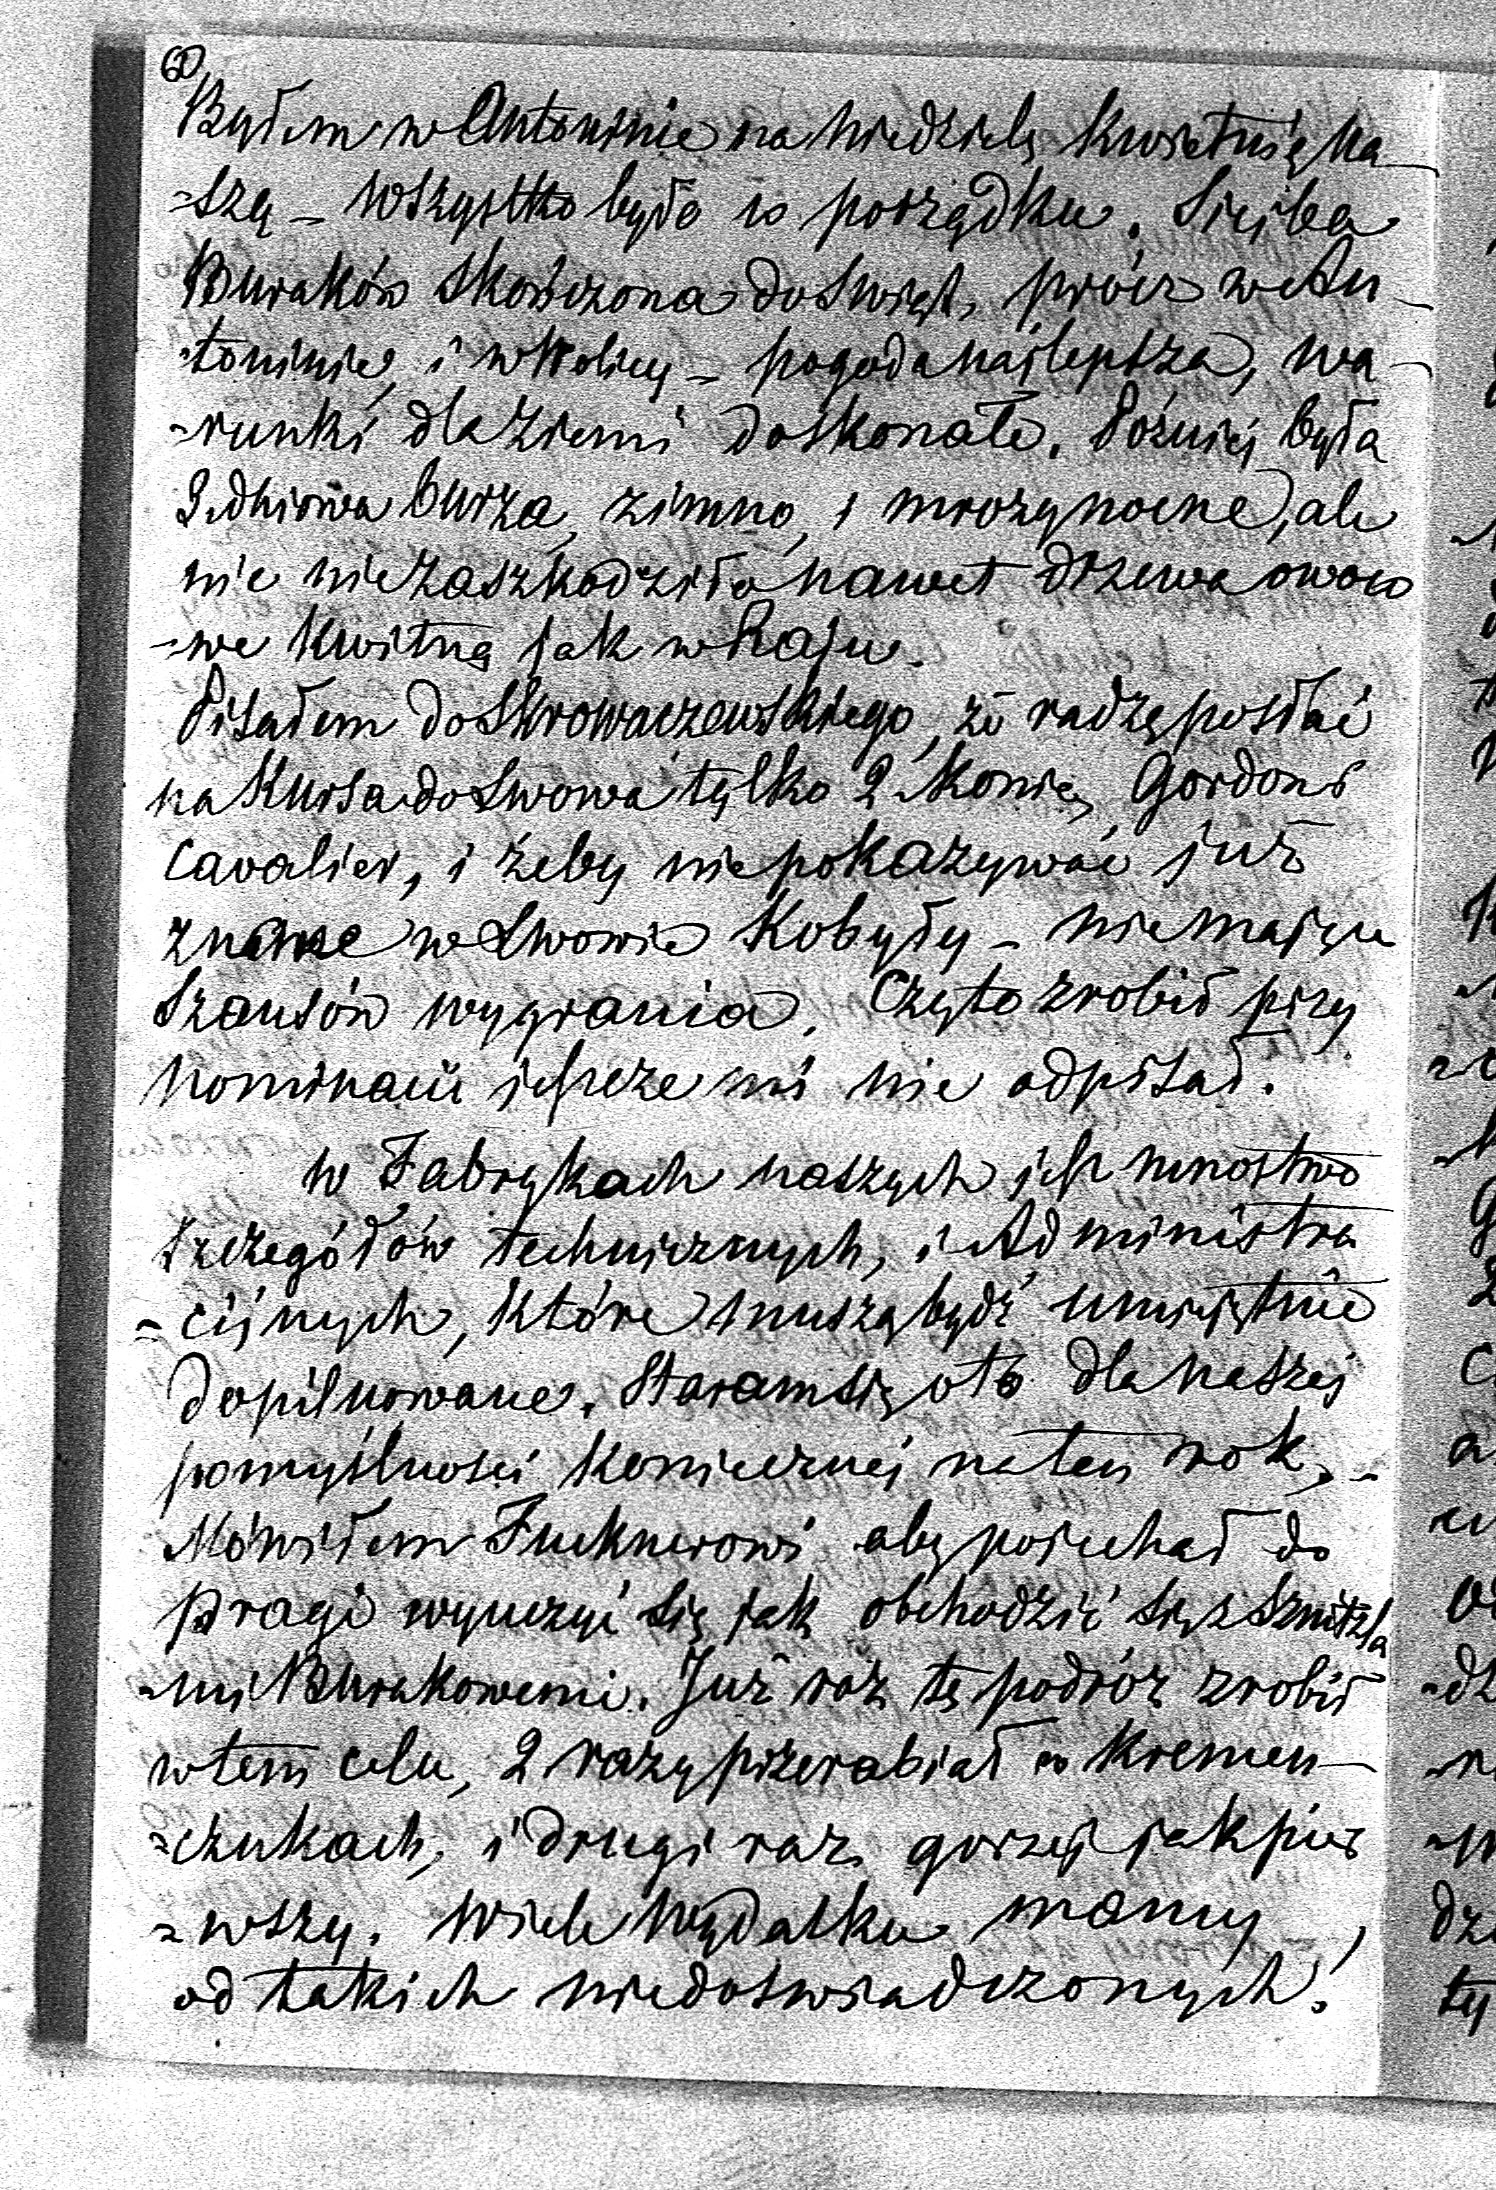 60
Byłem w Antoninie na Niedzielę Kwietnią Na-
-szą – wszystko było w porządku. Siejba
Buraków skończona do Świąt, prócz w An-
-toninie, i w Kolicy – pogoda najlepsza, wa-
-runki dla Ziemi doskonałe. Poźniej była
2 dniowa burza, zimno, i mrozy nocne, ale
nic nie zaszkodziło nawet drzewa owoco
-we Kwitną jak w Raju.
Pisałem do Skrowaczewskiego, że radzę posłać
na Kursa do Lwowa tylko 2 Konie, Gordon i
Cavalier, i żeby nie pokazywać już
znane w Lwowie Kobyły – nie mające
Szansów wygrania. Czy to zrobił przy
Nominacii jeszcze mi nie odpisał.
W Fabrykach naszych jest mnostwo
szczegółów technicznych, i Administra
-cijnych, które muszą bydź umiejętnie
dopilnowane. Staram się oto dla naszej
pomyślności Koniecznej na ten rok, -
Mówiłem Fucknerowi aby pojechał do
Pragi wyuczyć się jak obchodzić się z Sznitzla
-mi Burakowemi. Już raz tę podróż zrobił
w tem celu, 2 razy przerabiał w Kremen-
-czukach, i drugi raz gorzej jak pier
-wszy. Wiele Wydatku mamy,
od takich niedoświadczonych!